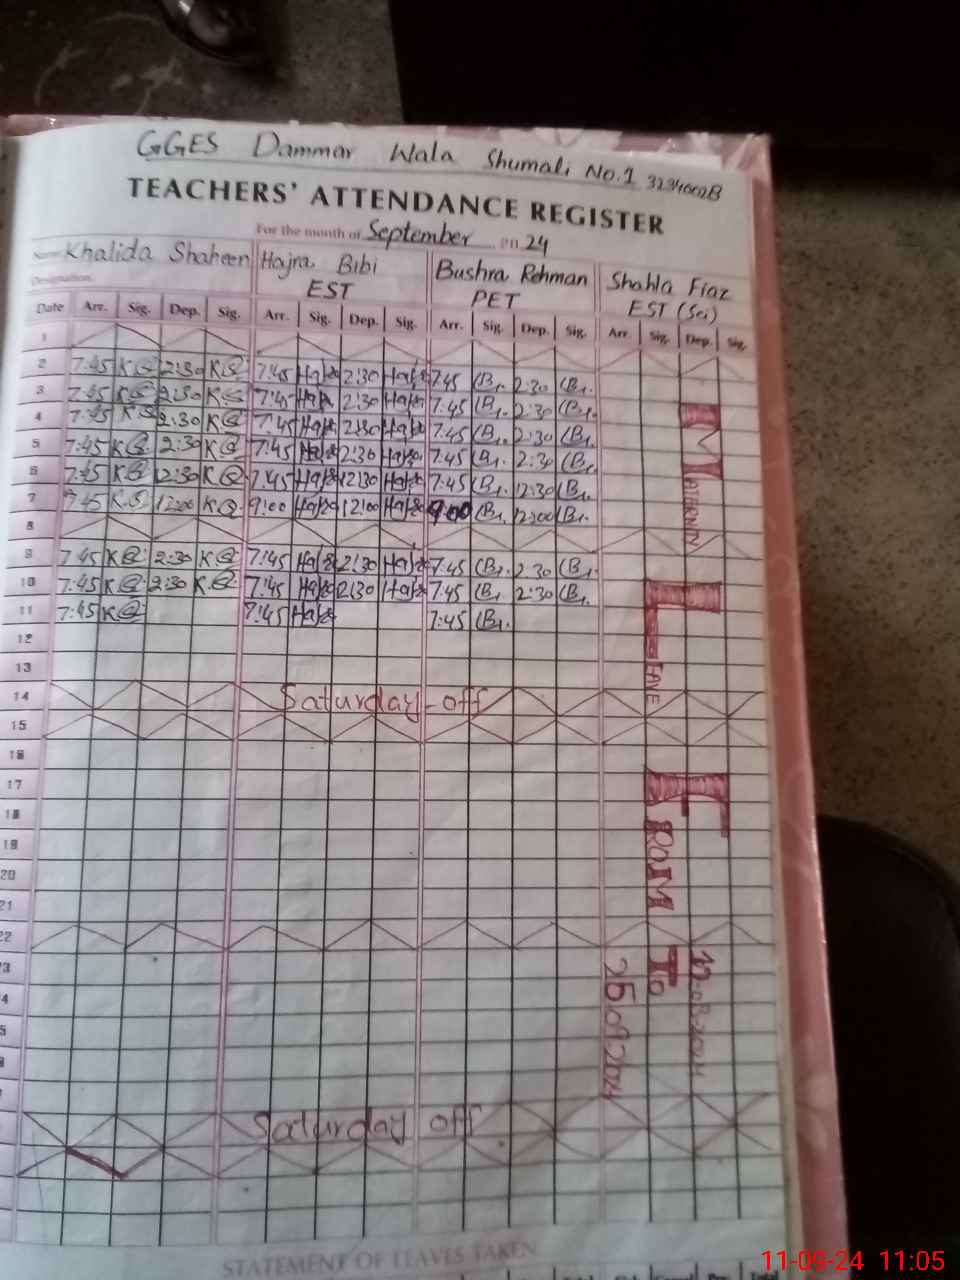 GGES Dammar Wala Shumali No.1 32340028
TEACHERS' ATTENDANCE REGISTER
For the month of September 24
Name Khalida Shaheen Hajra Bibi Bushra Rehman Shahla Fiaz
Designation EST PET EST (Sci)
Date Arr. Sig. Dep. Sig. Arr. Sig. Dep. Sig. Arr. Sig. Dep. Sig. Arr. Sig. Dep. Sig.
1
2 7:45 K.S 2:30 K.S 7:45 2:30 7:45 2:30
3 7:45 K.S 2:30 K.S 7:45 2:30 7:45 2:30
4 7:45 K.S 2:30 K.S 7:45 2:30 7:45 2:30
5 7:45 K.S 2:30 K.S 7:45 2:30 7:45 2:30
6 7:45 K.S 12:30 K.S 7:45 12:30 7:45 12:30
7 7:45 K.S 12:00 K.S 9:00 12:00 9:00 12:00
8
9 7:45 K.S 2:30 K.S 7:45 2:30 7:45 2:30
10 7:45 K.S 2:30 K.S 7:45 2:30 7:45 2:30
11 7:45 K.S 7:45 7:45
12
13
14 Saturday off
15
16
17
18
19
20
21
22
Saturday off
MATERNITY
LEAVE
FROM
TO
STATEMENT OF LEAVES TAKEN
11-09-24 11:05